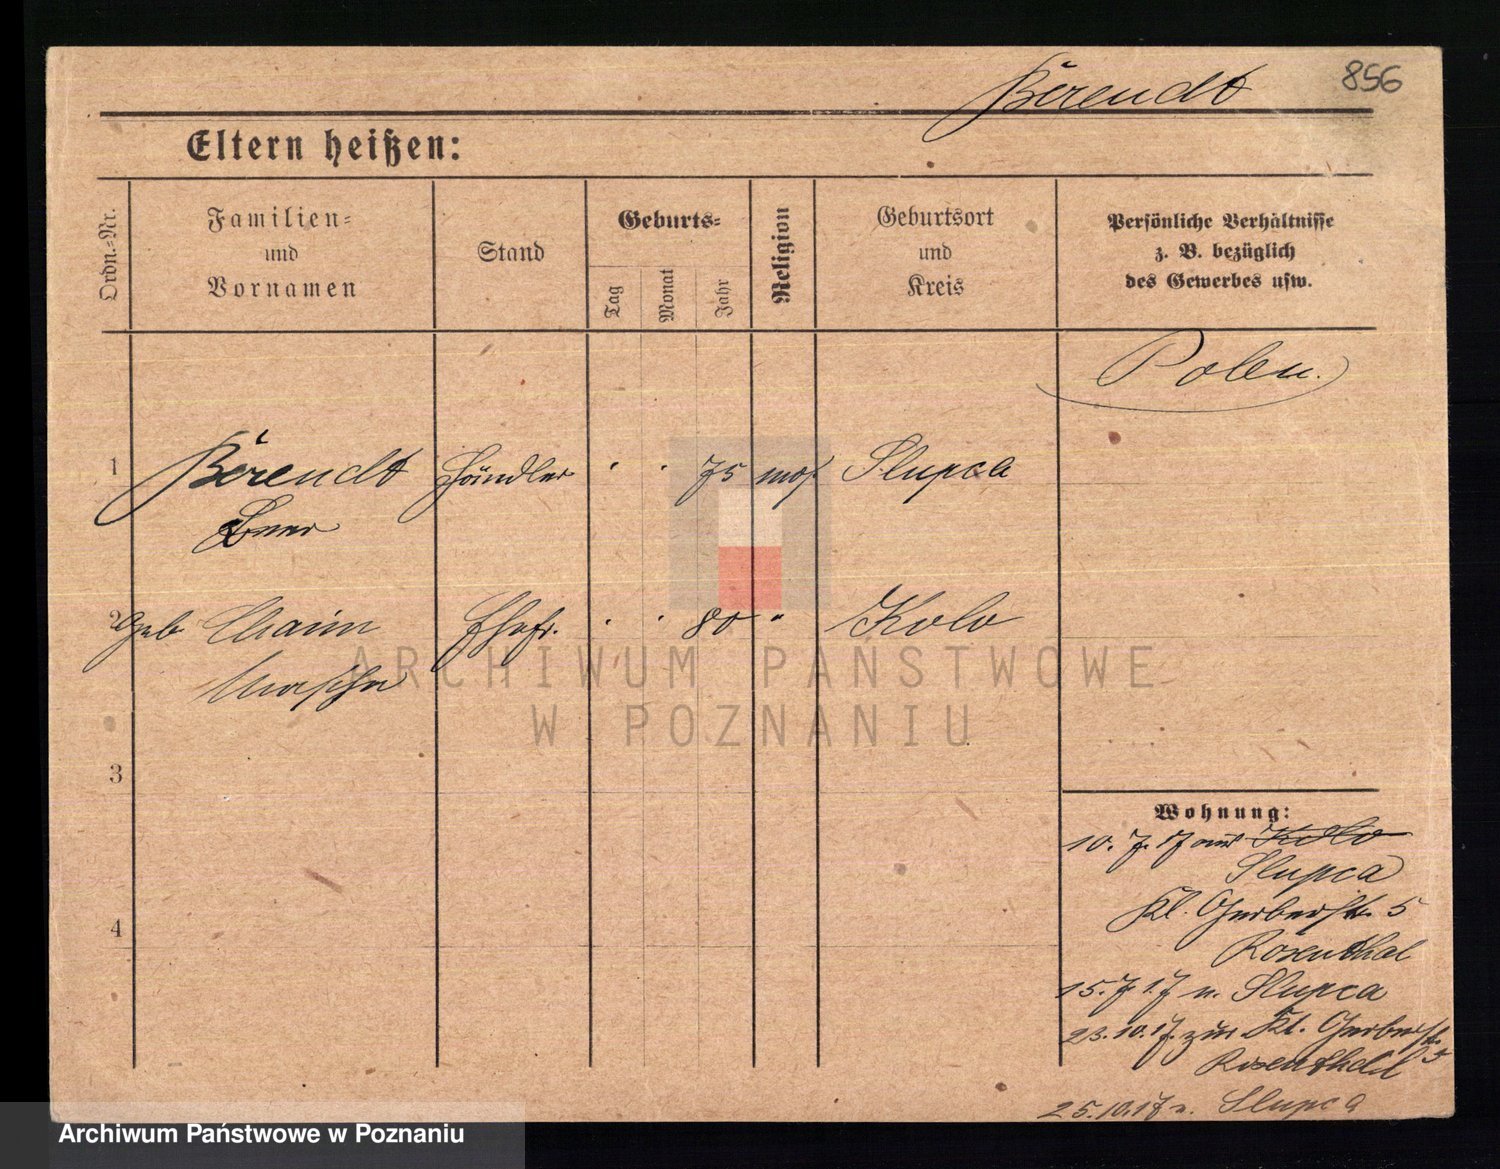 Berendt
856
Eltern heißen:
Ordn.-Nr.
Familien-
und
Vornamen
Stand
Geburts-
Tag
Monat
Jahr
Religion
Geburtsort
und
Kreis
Persönliche Verhältnisse
z. B. bezüglich
des Gewerbes usw.
Polen.
1 Berendt Händler 75 mos. Slupca
2 geb. Chaim Ehefr. 80 " Kolo
ARCHIWUM PAŃSTWOWE
W POZNANIU
3
4
Wohnung:
10. 7. 17 aus Kolo
Slupca
Kl. Gerberstr. 5
Rosenthal
15. 7. 17 n. Slupca
23. 10. 17. zur Kl. Gerberstr. 5
Rosenthal
25. 10. 17 n. Slupca
Archiwum Państwowe w Poznaniu